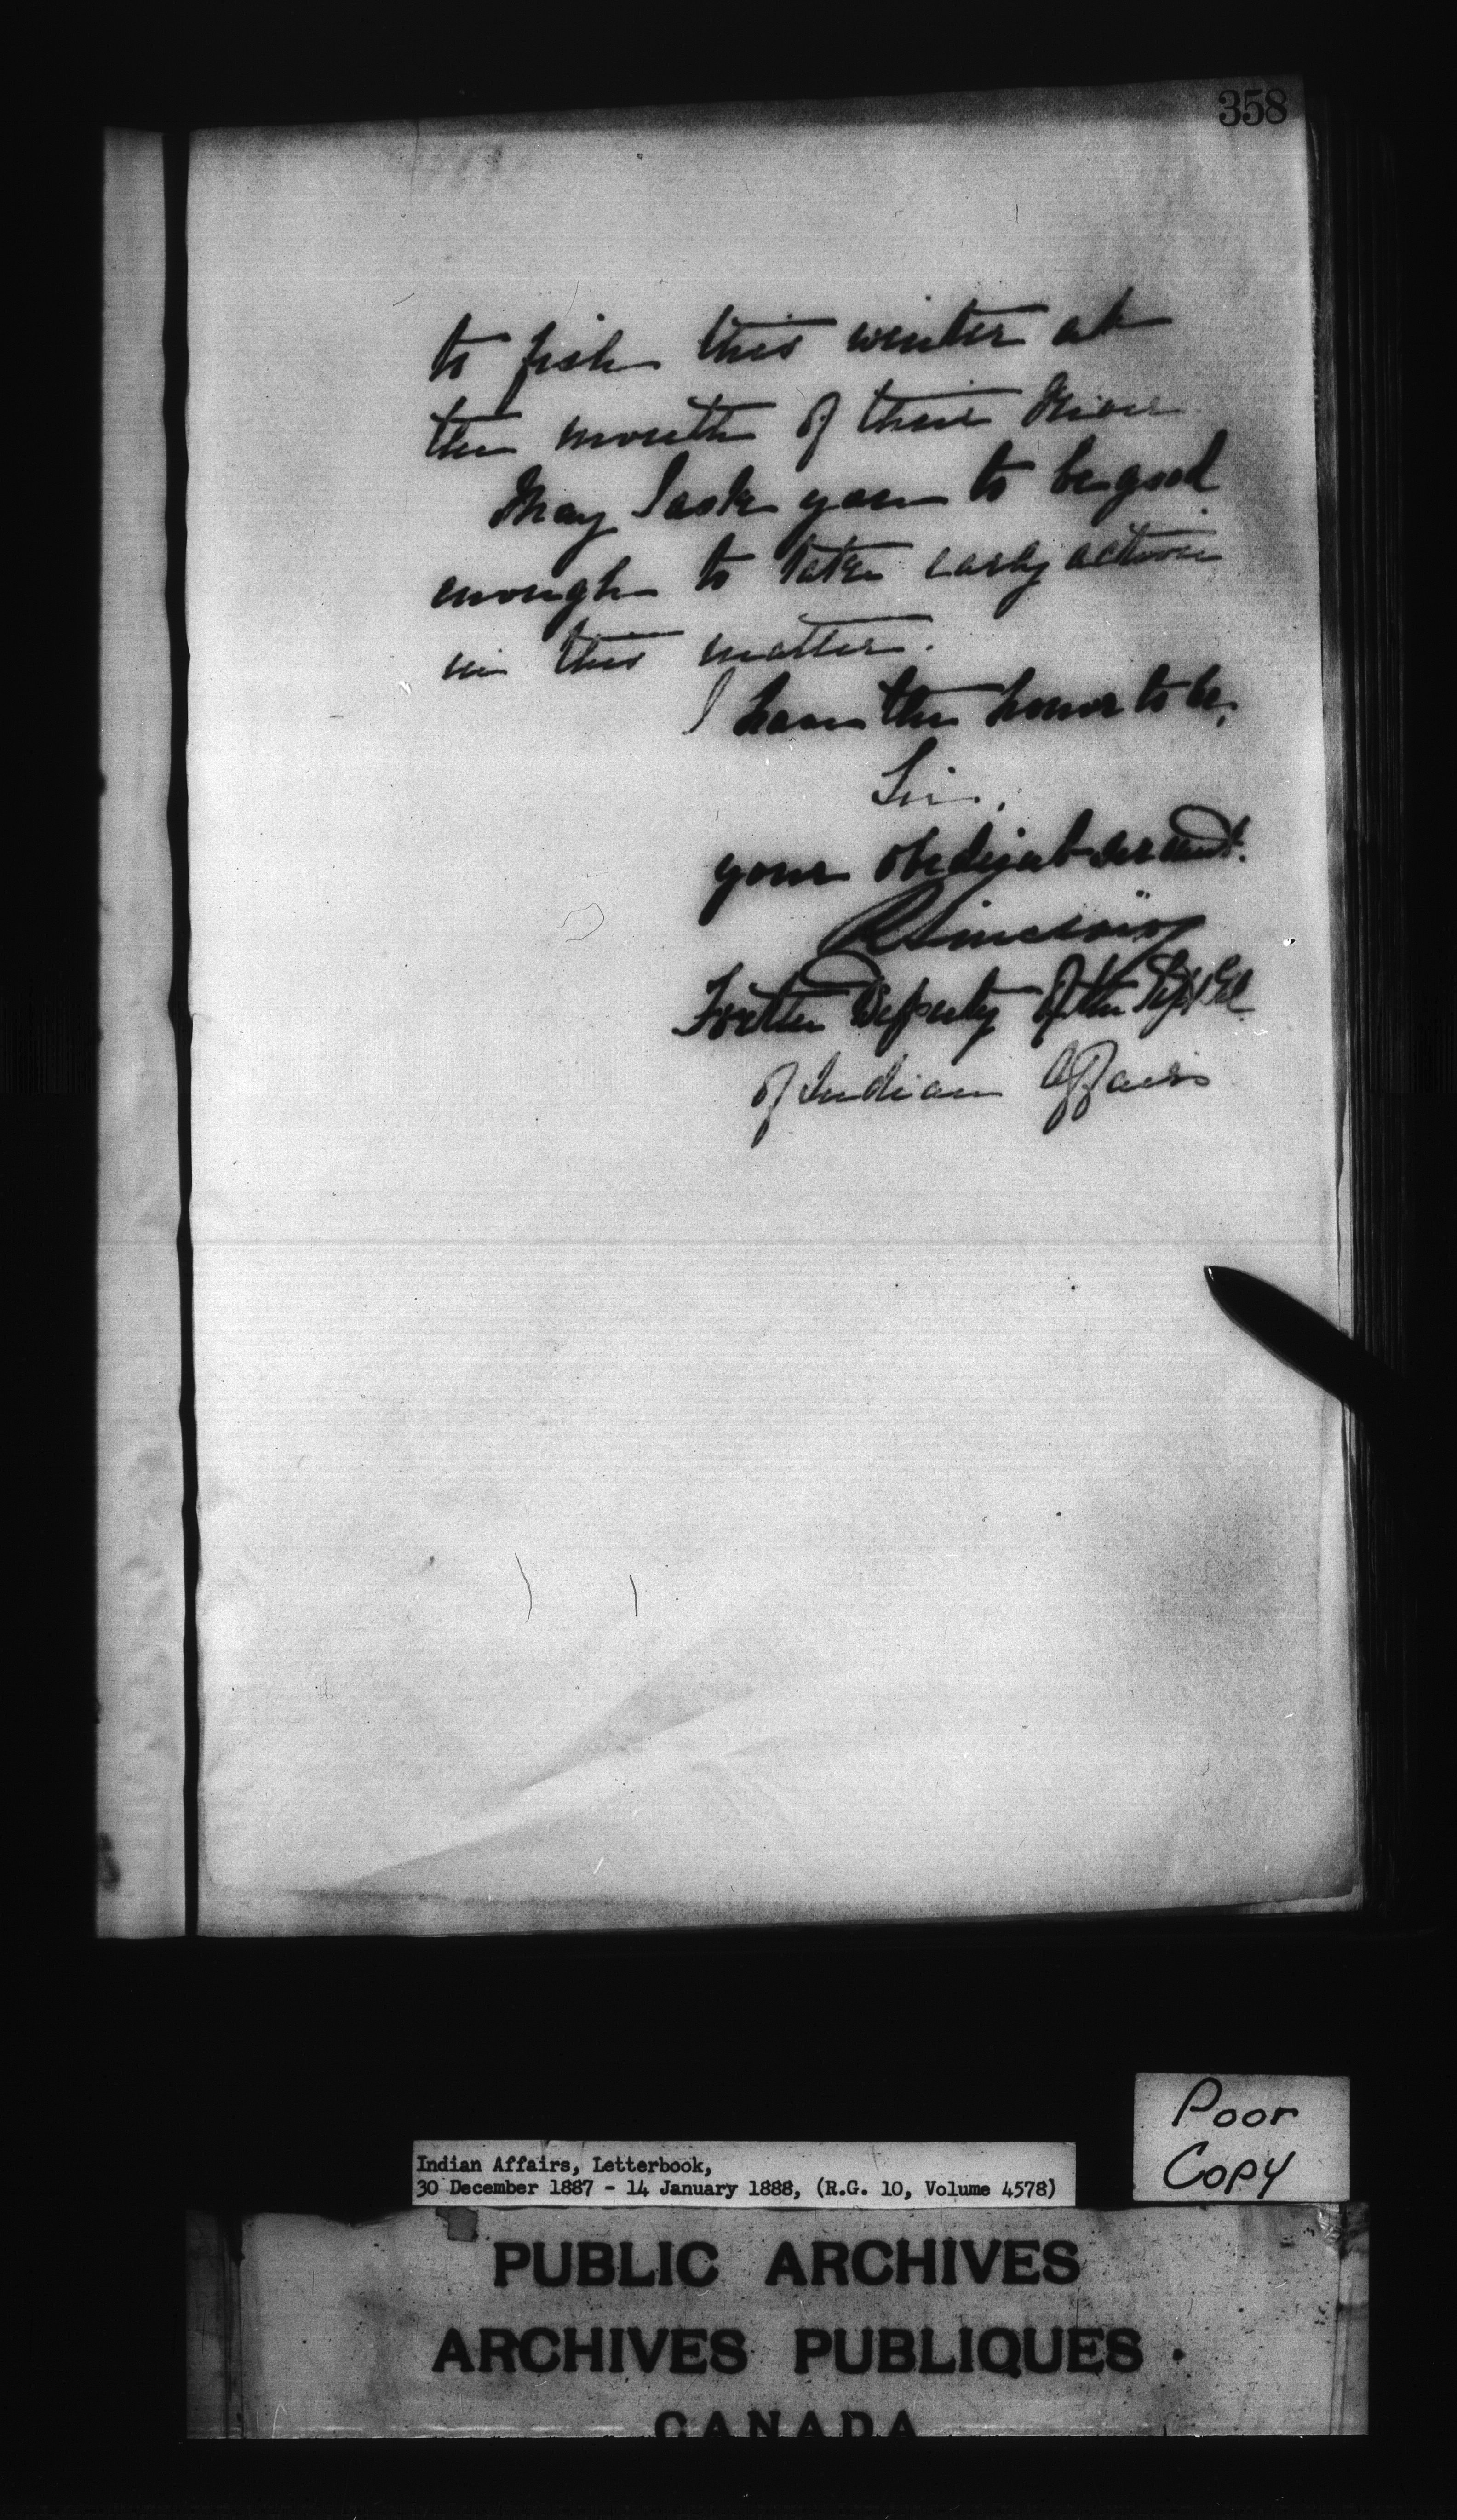 358
to fish this winter at
the mouth of their River
May I ask you to be good
enough to take early action
in this matter.
I have the honor to be,
Sir,
your obedient servant.
R Sinclair
For the Deputy of the Supt Genl
of Indian Affairs
Poor
Copy
Indian Affairs, Letterbook,
30 December 1887 - 14 January 1888, (R.G. 10, Volume 4578)
PUBLIC ARCHIVES
ARCHIVES PUBLIQUES
CANADA